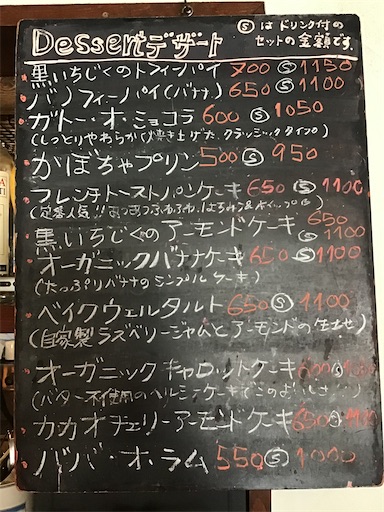 Dessertデザート
Ⓢはドリンク付の
セットの金額です。
黒いちじくのトフィーパイ 700 Ⓢ 1150
バノフィーパイ(バナナ) 650 Ⓢ 1100
ガトー・オ・ショコラ 600 Ⓢ 1050
(しっとりやわらかく焼き上げた、クラシックタイプ)
かぼちゃプリン 500 Ⓢ 950
フレンチトーストパンケーキ 650 Ⓢ 1100
(定番人気!! あつあつふわふわ、はちみつ&ホイップ)
黒いちじくのアーモンドケーキ 650
Ⓢ 1100
オーガニックバナナケーキ 650 Ⓢ 1100
(たっぷりバナナのシンプルケーキ)
ベイクウェルタルト 650 Ⓢ 1100
(自家製ラズベリージャムとアーモンドの生地)
オーガニックキャロットケーキ 600 Ⓢ
(バター不使用のヘルシーケーキ
カカオチェリーアーモンドケーキ 650 Ⓢ 1100
ババ・オ・ラム 550 Ⓢ 1000